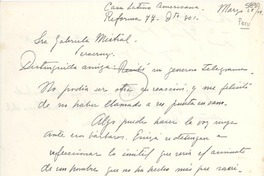 Casa Latino Americana.
Reforma 77. Marzo
Sra Gabriela Mistral.
Veracruz.
Distinguida amiga: Recibí su generoso telegrama.
No podía ser otra su reacción, y me felicité
de no haber llamado a su puerta en vano.
Algo puede hacer la voz suya
ante esos bárbaros. Quizá se detengan a
reflexionar lo inútil que sería el asesinato
de un hombre que no ha hecho más que